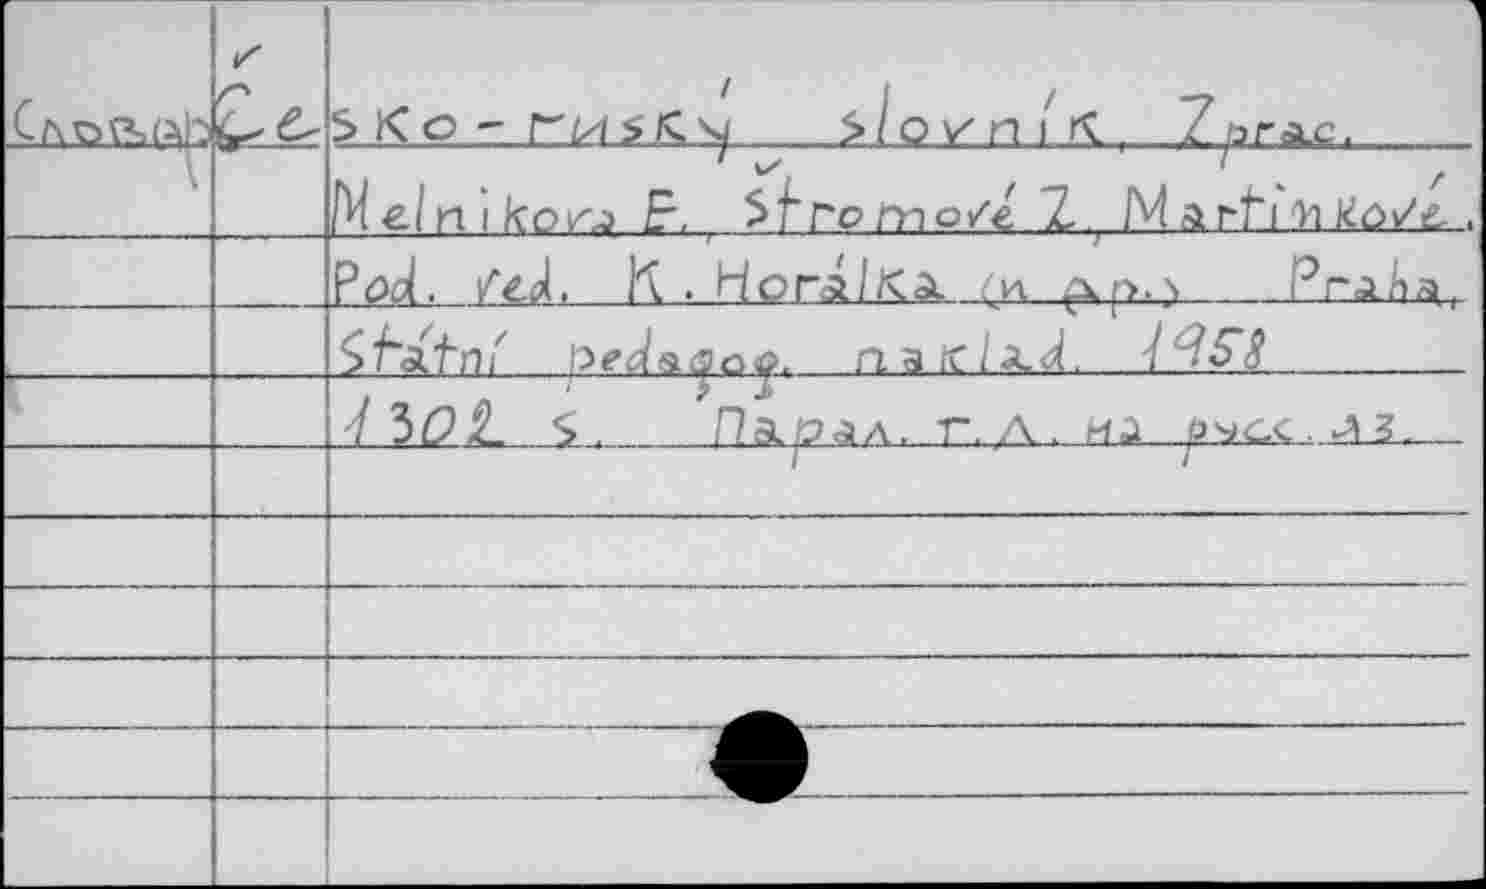 Словарь Česko-ruský slovník, Zprac.
Melnikova E., Štromové Z., Martinkové.
Pod. red. K. Horálka (и др.) Praha,
Státní pedagog. naklad. 1958
1302 s. Парал. т. л. на русс. яз.